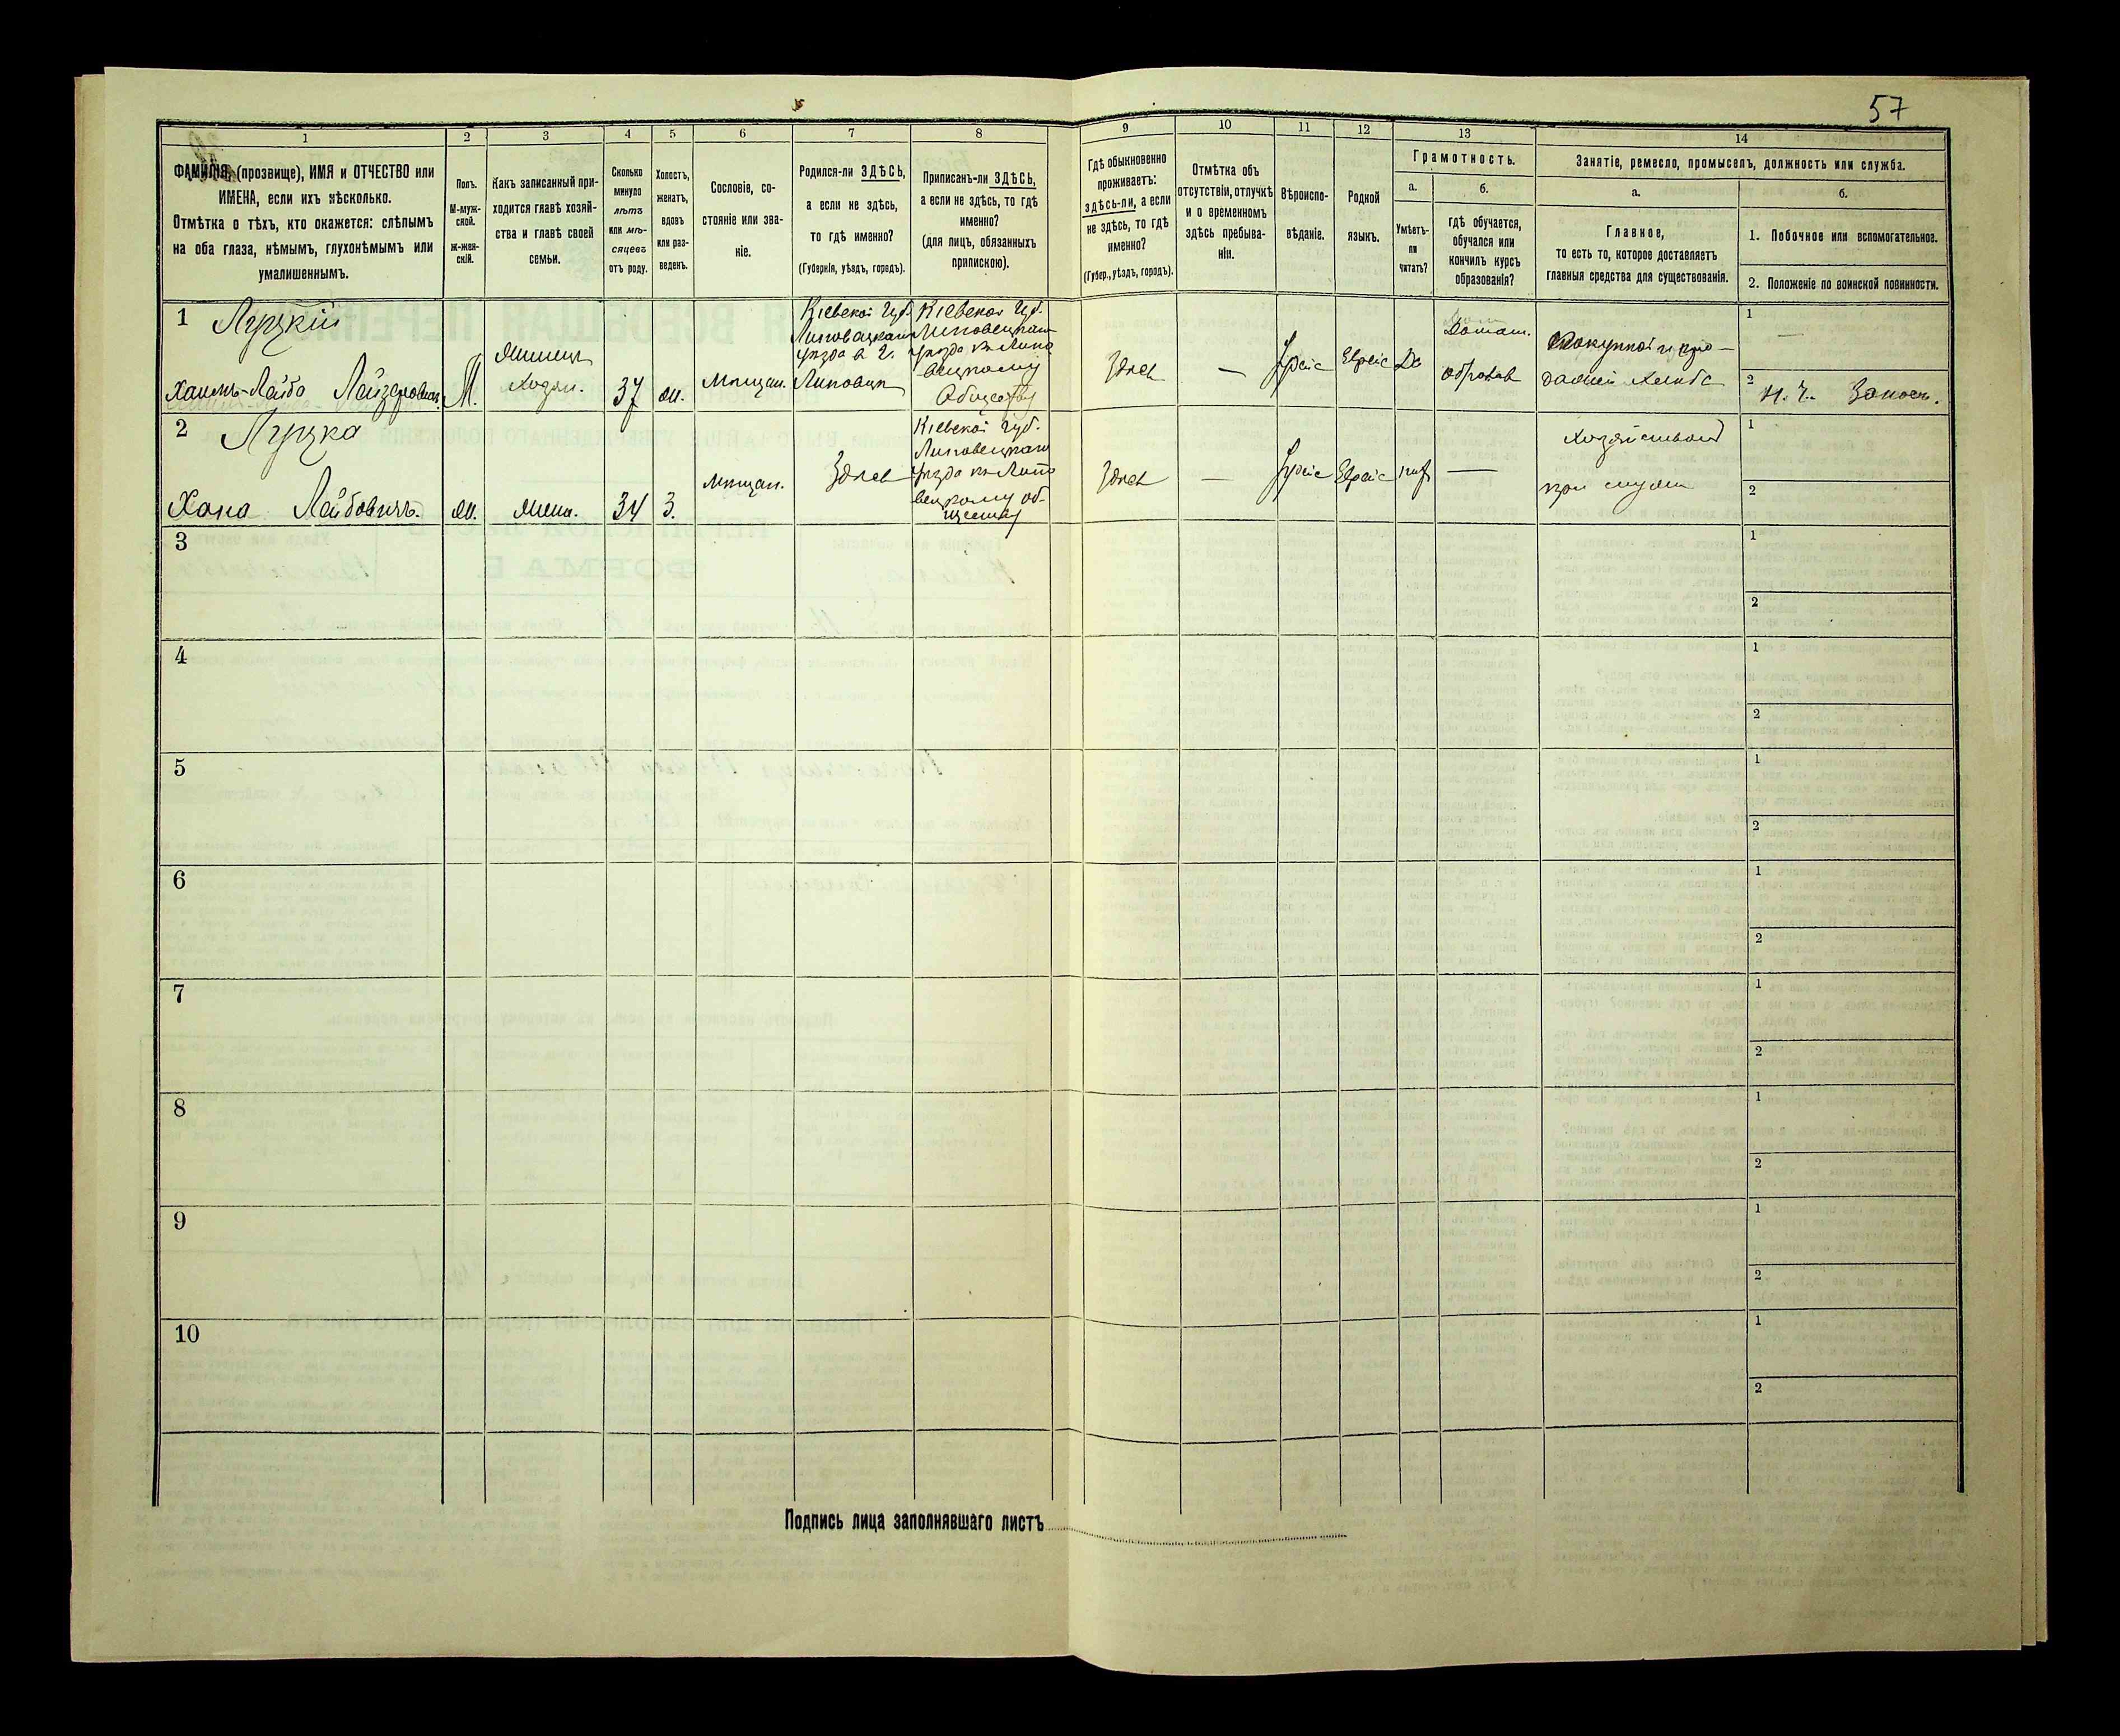 57
1
2
3
4
5
6
7
8
9
10
11
12
13
14
ФАМИЛІЯ, (прозвище), ИМЯ и ОТЧЕСТВО или
ИМЕНА, если ихъ нѣсколько.
Отмѣтка о тѣхъ, кто окажется: слѣпымъ
на оба глаза, нѣмымъ, глухонѣмымъ или
умалишеннымъ.
Полъ.
М-муж-
ской.
Ж-жен-
скій.
Какъ записанный при-
ходится главѣ хозяй-
ства и главѣ своей
семьи.
Сколько
минуло
лѣтъ
или мѣ-
сяцевъ
отъ роду.
Холостъ,
женатъ,
вдовъ
или раз-
веденъ.
Сословіе, со-
стояніе или зва-
ніе.
Родился-ли ЗДѢСЬ,
а если не здѣсь,
то гдѣ именно?
(Губернія, уѣздъ, городъ).
Приписанъ-ли ЗДѢСЬ,
а если не здѣсь, то гдѣ
именно?
(для лицъ, обязанныхъ
припискою).
Гдѣ обыкновенно
проживаетъ:
здѣсь-ли, а если
не здѣсь, то гдѣ
именно?
(Губер., уѣздъ, городъ).
Отмѣтка объ
отсутствіи, отлучкѣ
и о временномъ
здѣсь пребыва-
ніи.
Вѣроиспо-
вѣданіе.
Родной
языкъ.
Грамотность.
а.
Умѣетъ-
ли
читать?
б.
гдѣ обучается,
обучался или
кончилъ курсъ
образованія?
Занятіе, ремесло, промыселъ, должность или служба.
а.
Главное,
то есть то, которое доставляетъ
главныя средства для существованія.
б.
1. Побочное или вспомогательное.
2. Положеніе по воинской повинности.
1
Луцкій
Хаимъ-Лейбо Лейзеровичъ
М.
Хозяи.
37
Мѣщан.
Кіевской Губ.
Липовецкаго
уѣзда в г.
Липовцы
Кіевской Губ.
Липовецкаго
уѣзда къ Липо
вецкому
Обществу
Здѣсь
—
Іудейс
Еврейс
Да
Домаш.
образов
Покупкой и про-
дажей хлѣба
1 —
2
2
Луцка
Хана Лейбовичъ.
жен.
34
З.
Мѣщан.
Здѣсь
Кіевской Губ.
Липовецкаго
уѣзда къ Липо
вецкому об-
ществу
Здѣсь
—
Іудейс
Еврейс
нѣт
—
при мужѣ
1
2
3
1
2
4
1
2
5
1
2
6
1
2
7
1
2
8
1
2
9
1
2
10
1
2
Подпись лица заполнявшаго листъ